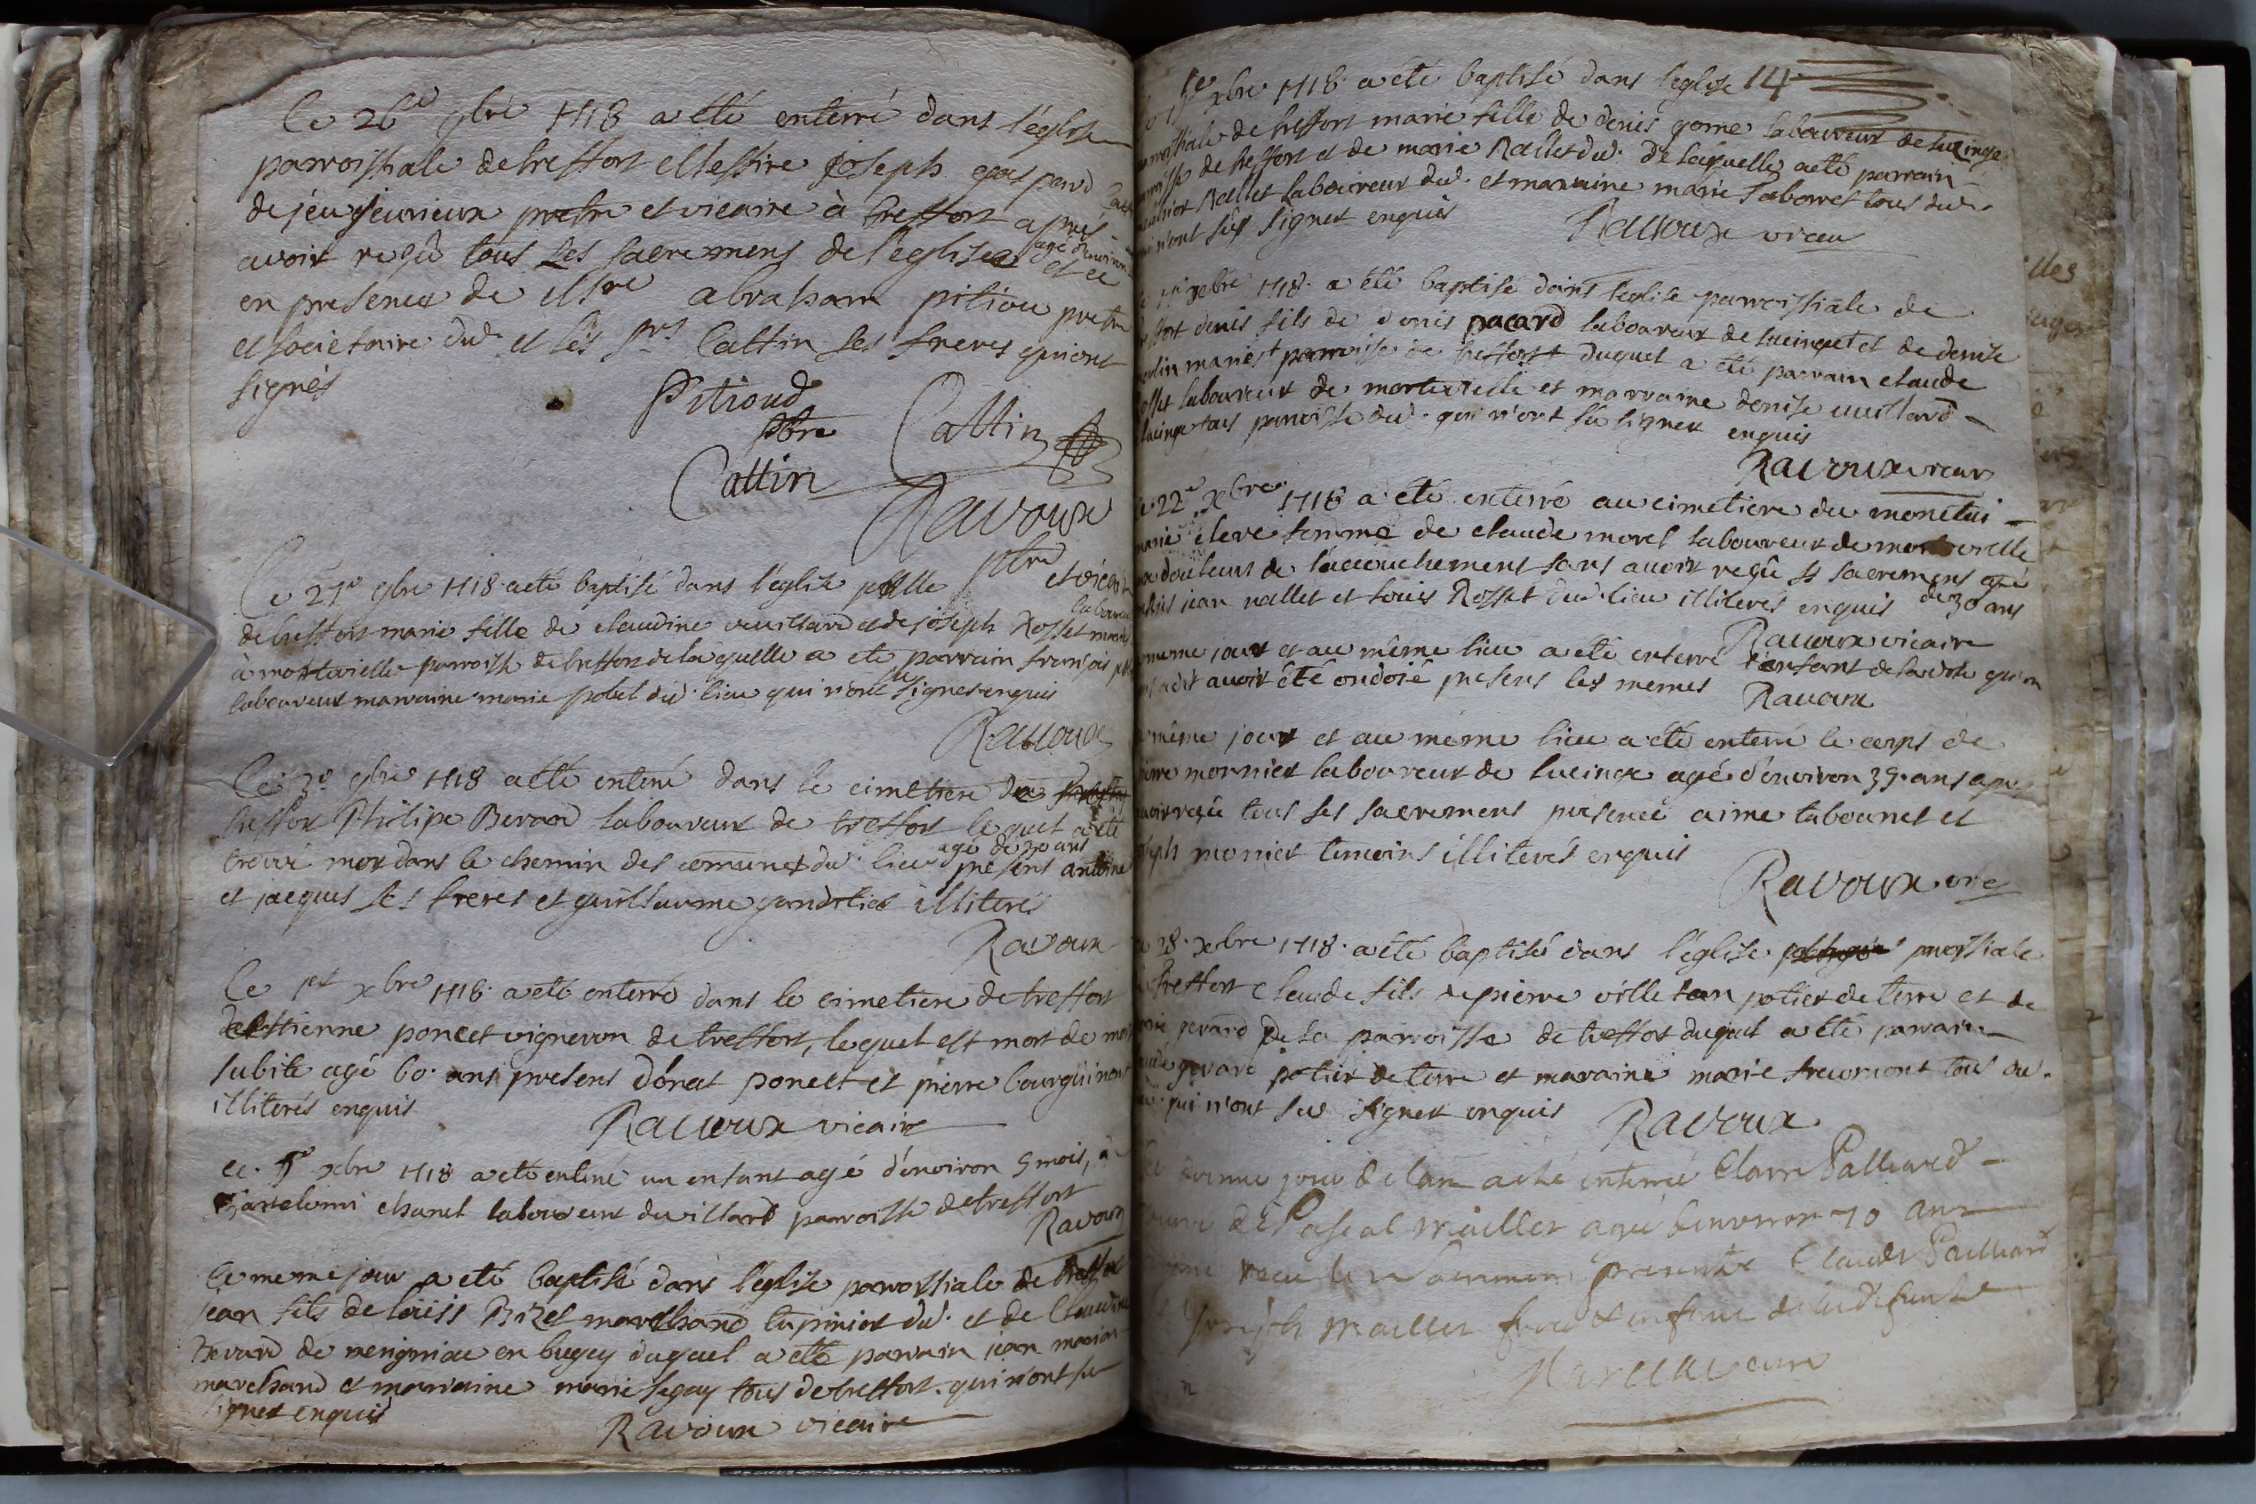 Ce 26e 9bre 1718 a eté enterré dans l'eglise
parroissiale de treffort Messire joseph
de jeujeurieux pretre et vicaire à treffort après
avoir reçû tous les sacremens de l'eglise agé d'environ et ce
en presence de Msre abraham pitiou pretre
et societaire dud. et les Srs Cattin ses freres qui ont
signés
Pitioud
pbre
Cattin
Cattin
Ravoux
ptre et vicaire
Ce 27e 9bre 1718 a eté baptisé dans l'eglise plle
de treffort marie fille de claudine vuillard et de joseph Rosset laboureur
à montarielle parroisse de treffort de la quelle a eté parrain françois
laboureur marraine marie pobel dud. lieu qui n'ont sçu signer enquis
Ravoux
Ce 30 9bre 1718 a eté enterré dans le cimetiere de
treffort Philipe Berard laboureur de treffort le quel a eté
trouvé mort dans le chemin des communes du. lieu agé de 30 ans presens antoine
et jacques ses freres et guillaume illiterés
Ravoux
Ce jer xbre 1718 a eté enterré dans le cimetiere de treffort
estienne poncet vigneron de treffort, lequel est mort de mort
subite agé 60. ans presens donat poncet et pierre bourguinon
illiterés enquis
Ravoux vicaire
ce. 5e xbre 1718 a eté enterré un enfant agé d'environ 9 mois, à
Bartelemi chanel laboureur du villard parroisse de treffort
Ravoux
Ce meme jour a eté baptisé dans l'eglise parroissiale de treffort
jean fils de loüis Bizet marchand tupinier dud. et de Claudine
Bevard de merigniac en bugey duquel a eté parrain jean
marchand et marraine marie legay tous de treffort. qui n'ont su
signer enquis
Ravoux vicaire
xbre 1718 a eté baptisé dans l'eglise 14
parroissiale de treffort marie fille de denis gome laboureur de lucinge
parroisse de treffort et de marie Rallet dud. De laquelle a eté parrain
Rallet laboureur dud. et marraine marie tabouret tous dud.
qui n'ont sçu signer enquis
Ravoux vicau
xbre 1718. a eté baptisé dans l'eglise parroissiale de
treffort denis fils de denis pacard laboureur de lucinge et de denise
mariés parroisse de treffort duquel a eté parrain claude
Rosset laboureur de montarielle et marraine denise vuillard
lucinge tous parroisse dud. qui n'ont sû signer enquis
Ravoux vicair
Ce 22e xbre 1718 a eté enterré au cimetiere du monetui
marie cleve femme de claude morel laboureur de montarielle
douleurs de l'accouchement sans avoir reçû ses sacremens agé de 30 ans
presens jean rallet et louis Rosset dud. lieu illiterés enquis
Ravoux vicaire
meme jour et au même lieu a eté enterré l'enfant de ladite qu'on
a dit avoir été ondoié presens les memes
Ravoux
même jour et au même lieu a eté enterré le corps de
pierre monnier laboureur de lucinge agé d'environ 39. ans apres
avoir reçû tous ses sacremens presence aime tabouret et
joseph monier temoins illiterés enquis
Ravoux vre
Ce 28. xbre 1718. a eté baptisé dans l'eglise parroissiale
de treffort Claude fils de pierre ville tan potier de terre et de
marie gerard de la parroisse de treffort duquel a eté parrain
claude gerard potier de terre et maraine marie freuront tous du.
lieu qui n'ont su signer enquis
Ravoux
dernier jour de l'an a eté enterré Claire Palliard
veuve de Pascal mailler agée d'environ 70 ans
reçu les sacremens presents Claude Palliard
Joseph mailler frere et enfant de lad. defunte